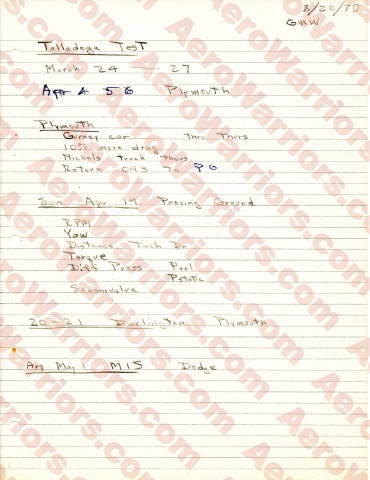 3/20/70
GMW
Talladega Test
March 24 - 27
Apr 4 5 6 Plymouth
Plymouth
Gurney car thru Thurs
10% more drag
Nichels truck thurs
Return 093 To P6
Sun Apr 19 Proving Ground
RPM
Yaw
Distance Tach Dr
Torque
Diff Press Prel
Pstatic
Scannivalve
20 - 21 Darlington Plymouth
May 1 MIS Dodge
AeroWarriors.com